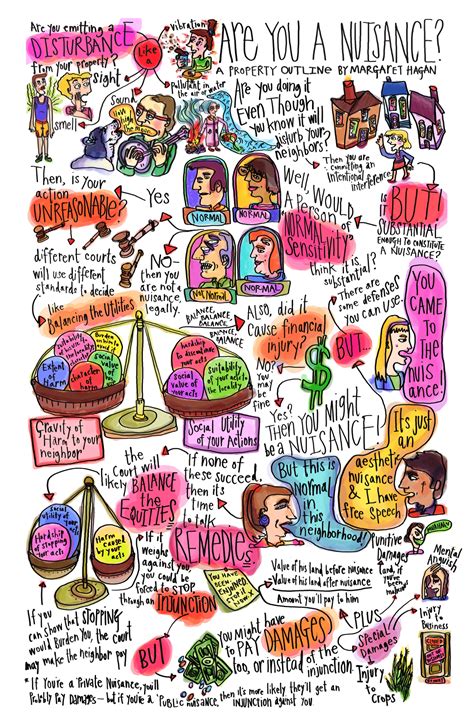 ARE YOU A NUISANCE?
A PROPERTY OUTLINE BY MARGARET HAGAN
Are you emitting a
DISTURBANCE
from your property?
Like
a
vibration
Pollutant in
the air or water
Sight
Sound
smell
Are you doing it
Even Though
you know it will
disturb your
neighbors?
Then you are
committing an
intentional
interference
BUT!
IS it
SUBSTANTIAL
ENOUGH to CONSTITUTE
A NUISANCE?
Well, Would
A Person of
"NORMAL
Sensitivity"
think it is
substantial?
NORMAL
NORMAL
Not Normal
NORMAL
Then, is your
action
UNREASONABLE?
Yes
NO-
then you
are not a
nuisance,
legally.
different courts
will use different
standards to decide
like
Balancing the Utilities
BALANCE,
BALANCE,
BALANCE,
BALANCE
Extent
of
Harm
character
of harm
social
value of
Hardship
to discontinue
your acts
social
value of
your acts
suitability
of your acts
to the locality
Gravity of
Harm to your
neighbor
Social Utility
of your Actions
Also, did it
Cause financial
injury?
No?
may
be
fine
Yes?
THEN YOU MIGHT
be a NUISANCE!
There are
some defenses
you can use.
BUT...
YOU
CAME
TO THE
nuis
ance!
But this is
Normal
in this
neighborhood!
It's just
an
aesthetic
nuisance &
I have
free speech
If none of
these succeed,
then its
time
to talk
REMEDIES
the Court will
likely BALANCE
the
EQUITIES
Social
utility of your
acts
Hardship
of stopping
your
acts
Harm
caused by
your acts
If it
weighs
against you,
you could be
forced to STOP
through an INJUNCTION
YOU HAVE
BEEN
ENJOINED
If you
can show that STOPPING
would Burden You, the court
may make the neighbor pay
BUT
You might have
to PAY DAMAGES
too, or instead of the
injunction.
Value of his land before nuisance
- Value of his land after nuisance
Amount you'll pay to him
PLUS
Special
Damages
Punitive
Damages,
if
you've
been
Mental
Anguish
Injury
to
Business
OUT OF
BUSINESS
Injury
to
Crops
* If You're a Private Nuisance, you'll
Probably Pay Damages — but if you're a "PUBLIC" nuisance, then it's more likely they'll get an
INJUNCTION AGAINST YOU